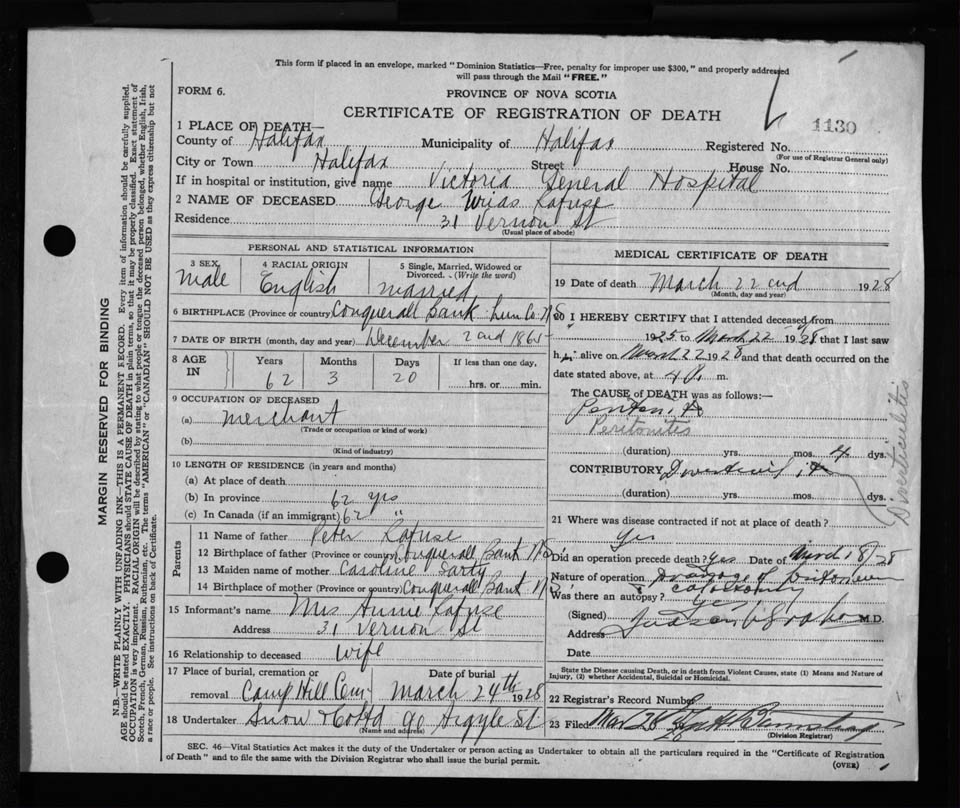 This form if placed in an envelope, marked "Dominion Statistics—Free, penalty for improper use $300," and properly addressed
will pass through the Mail "FREE."
FORM 6.
PROVINCE OF NOVA SCOTIA
CERTIFICATE OF REGISTRATION OF DEATH
1130
1 PLACE OF DEATH—
County of Halifax Municipality of Halifax Registered No.
(For use of Registrar General only)
City or Town Halifax Street House No.
If in hospital or institution, give name Victoria General Hospital
2 NAME OF DECEASED George Rafuse
Residence 31 Vernon St
(Usual place of abode)
PERSONAL AND STATISTICAL INFORMATION
3 SEX Male
4 RACIAL ORIGIN English
5 Single, Married, Widowed or Divorced. (Write the word) married
6 BIRTHPLACE (Province or country) Conquerall Bank Lun Co. N S
7 DATE OF BIRTH (month, day and year) December 2nd 1865
8 AGE IN Years Months Days If less than one day,
62 3 20 hrs. or min.
9 OCCUPATION OF DECEASED
(a) merchant
(Trade or occupation or kind of work)
(b)
(Kind of industry)
10 LENGTH OF RESIDENCE (in years and months)
(a) At place of death
(b) In province 62 yrs
(c) In Canada (if an immigrant) 62 "
Parents
11 Name of father Peter Rafuse
12 Birthplace of father (Province or country) Conquerall Bank N S
13 Maiden name of mother Caroline Sarty
14 Birthplace of mother (Province or country) Conquerall Bank N S
15 Informant's name Mrs Annie Rafuse
Address 31 Vernon St
16 Relationship to deceased Wife
17 Place of burial, cremation or removal Camp Hill Cem Date of burial March 24th 1928
18 Undertaker Snow & Co Ltd 90 Argyle St
(Name and address)
MEDICAL CERTIFICATE OF DEATH
19 Date of death March 22nd 1928
(Month, day and year)
20 I HEREBY CERTIFY that I attended deceased from
1925 to March 22 1928 that I last saw
h alive on March 22 1928 and that death occurred on
date stated above, at 4 m.
The CAUSE OF DEATH was as follows:—
Peritonitis
(duration) yrs. mos. 4 dys.
CONTRIBUTORY
Diverticulitis
(duration) yrs. mos. dys.
21 Where was disease contracted if not at place of death?
Yes
Did an operation precede death? Yes Date of March 18/28
Nature of operation
Was there an autopsy?
(Signed) M.D.
Address
Date
State the Disease causing Death, or in death from Violent Causes, state (1) Means and Nature of
Injury, (2) whether Accidental, Suicidal or Homicidal.
22 Registrar's Record Number
23 Filed Mar 28
(Division Registrar)
SEC. 46—Vital Statistics Act makes it the duty of the Undertaker or person acting as Undertaker to obtain all the particulars required in the "Certificate of Registration
of Death" and to file the same with the Division Registrar who shall issue the burial permit.
(OVER)
MARGIN RESERVED FOR BINDING
N.B.—WRITE PLAINLY WITH UNFADING INK—THIS IS A PERMANENT RECORD. Every item of information should be carefully supplied.
AGE should be stated EXACTLY. PHYSICIANS should STATE CAUSE OF DEATH in plain terms, so that it may be properly classified. Exact statement of
OCCUPATION is very important. RACIAL ORIGIN will be described by stating to what people or tongue the deceased person belonged, whether English, Irish,
Scotch, French, German, Russian, Ruthenian, etc. The terms "AMERICAN" or "CANADIAN" SHOULD NOT BE USED as they express citizenship but not
a race or people. See instructions on back of Certificate.